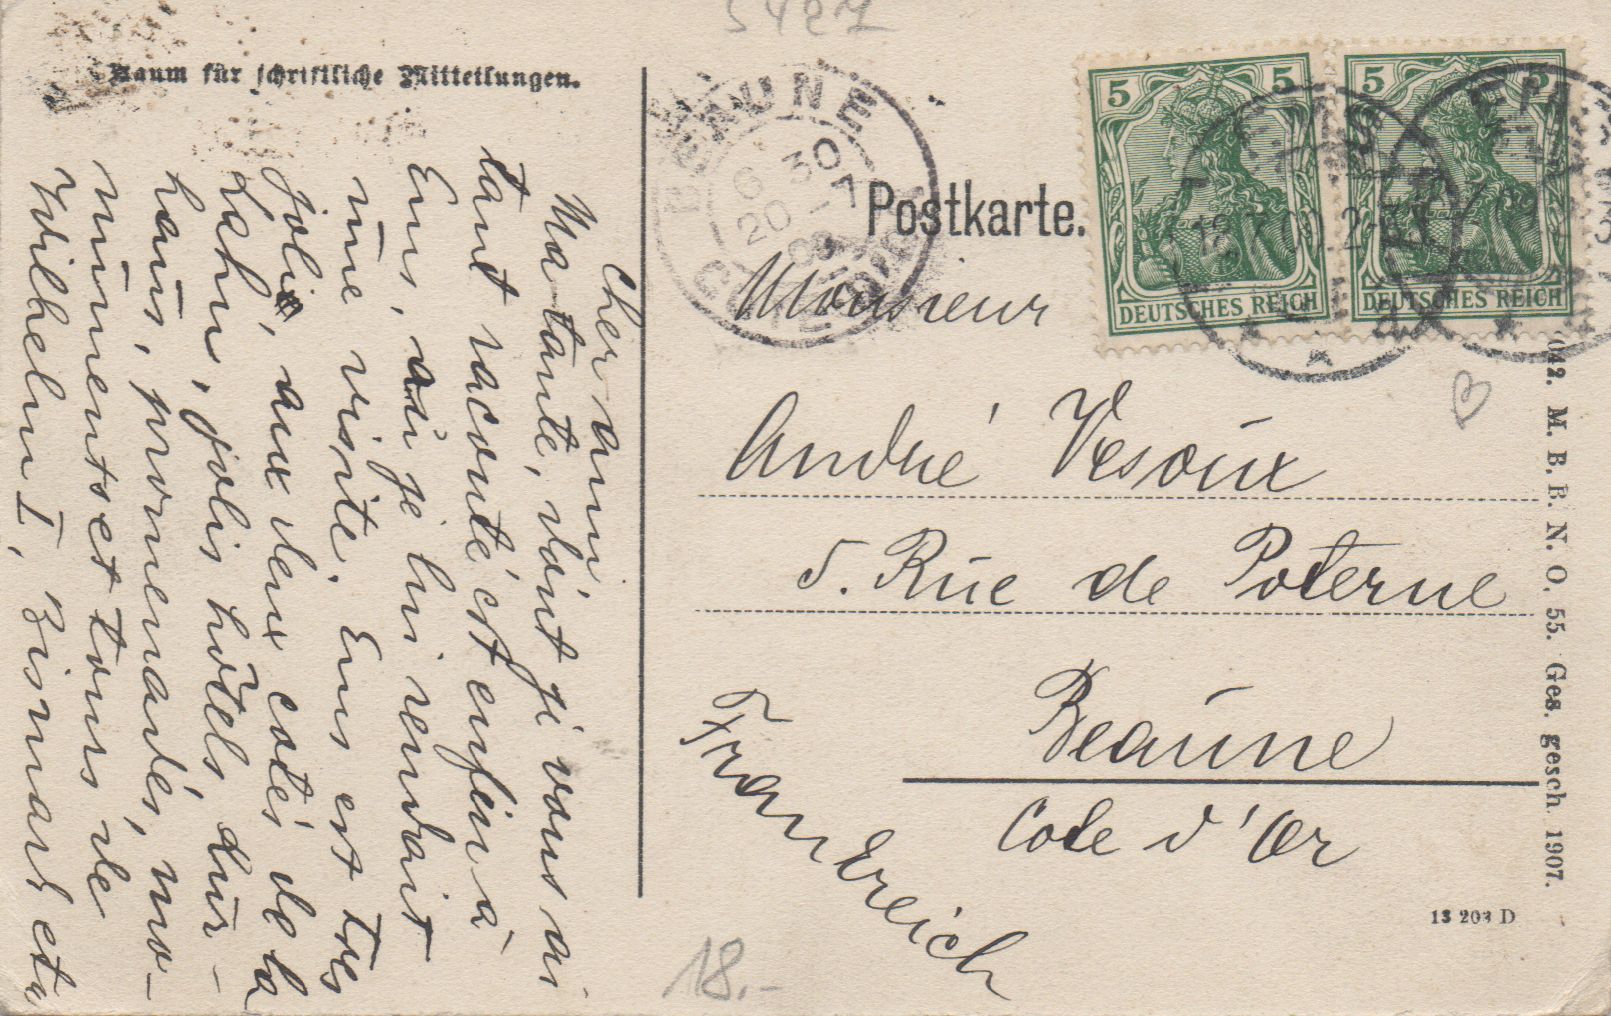 5427
Raum für schriftliche Mitteilungen.
Cher ami
Ma tante, dont je vous ai
tant raconté est enfin à
Ems, où je lui rendait
une visite. Ems est tres
joli, aux deux cotés de la
Lahn, jolis hôtels, Kur-
haus, promenades, mo-
numents et tours de
Wilhelm I, Bismark etc
BEAUNE
6 30
20 -7
09
COTE-D'OR
Postkarte.
5 5
DEUTSCHES REICH
5 5
DEUTSCHES REICH
EMS
18.7.09.2-3
EMS
Monsieur
André Vesoux
5. Rue de Poterne
Beaune
Cote d'Or
Frankreich
042. M. B. B. N. O. 55. Ges. gesch. 1907.
13 203 D
18.-